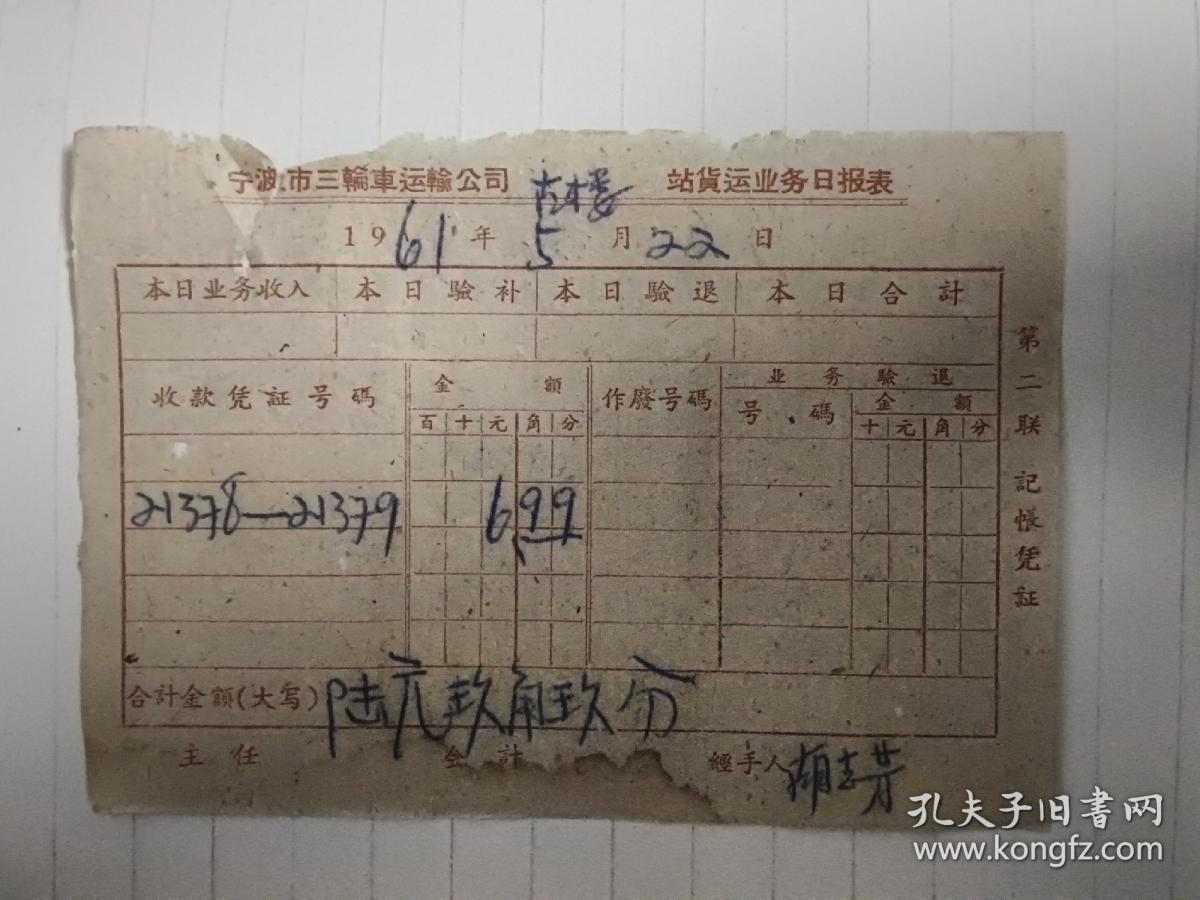 宁波市三輪車运輸公司 站貨运业务日报表
1961年5月22日
本日业务收入 本日驗补 本日驗退 本日合計
收款凭証号碼 金額 作廢号碼 业务驗退
号碼 金額
百十元角分 十元角分
21378—21379 6 9 9
合計金額(大写) 陆元玖角玖分
主任 会計 經手人
第二联 記帳凭証
孔夫子旧书网
www.kongfz.com